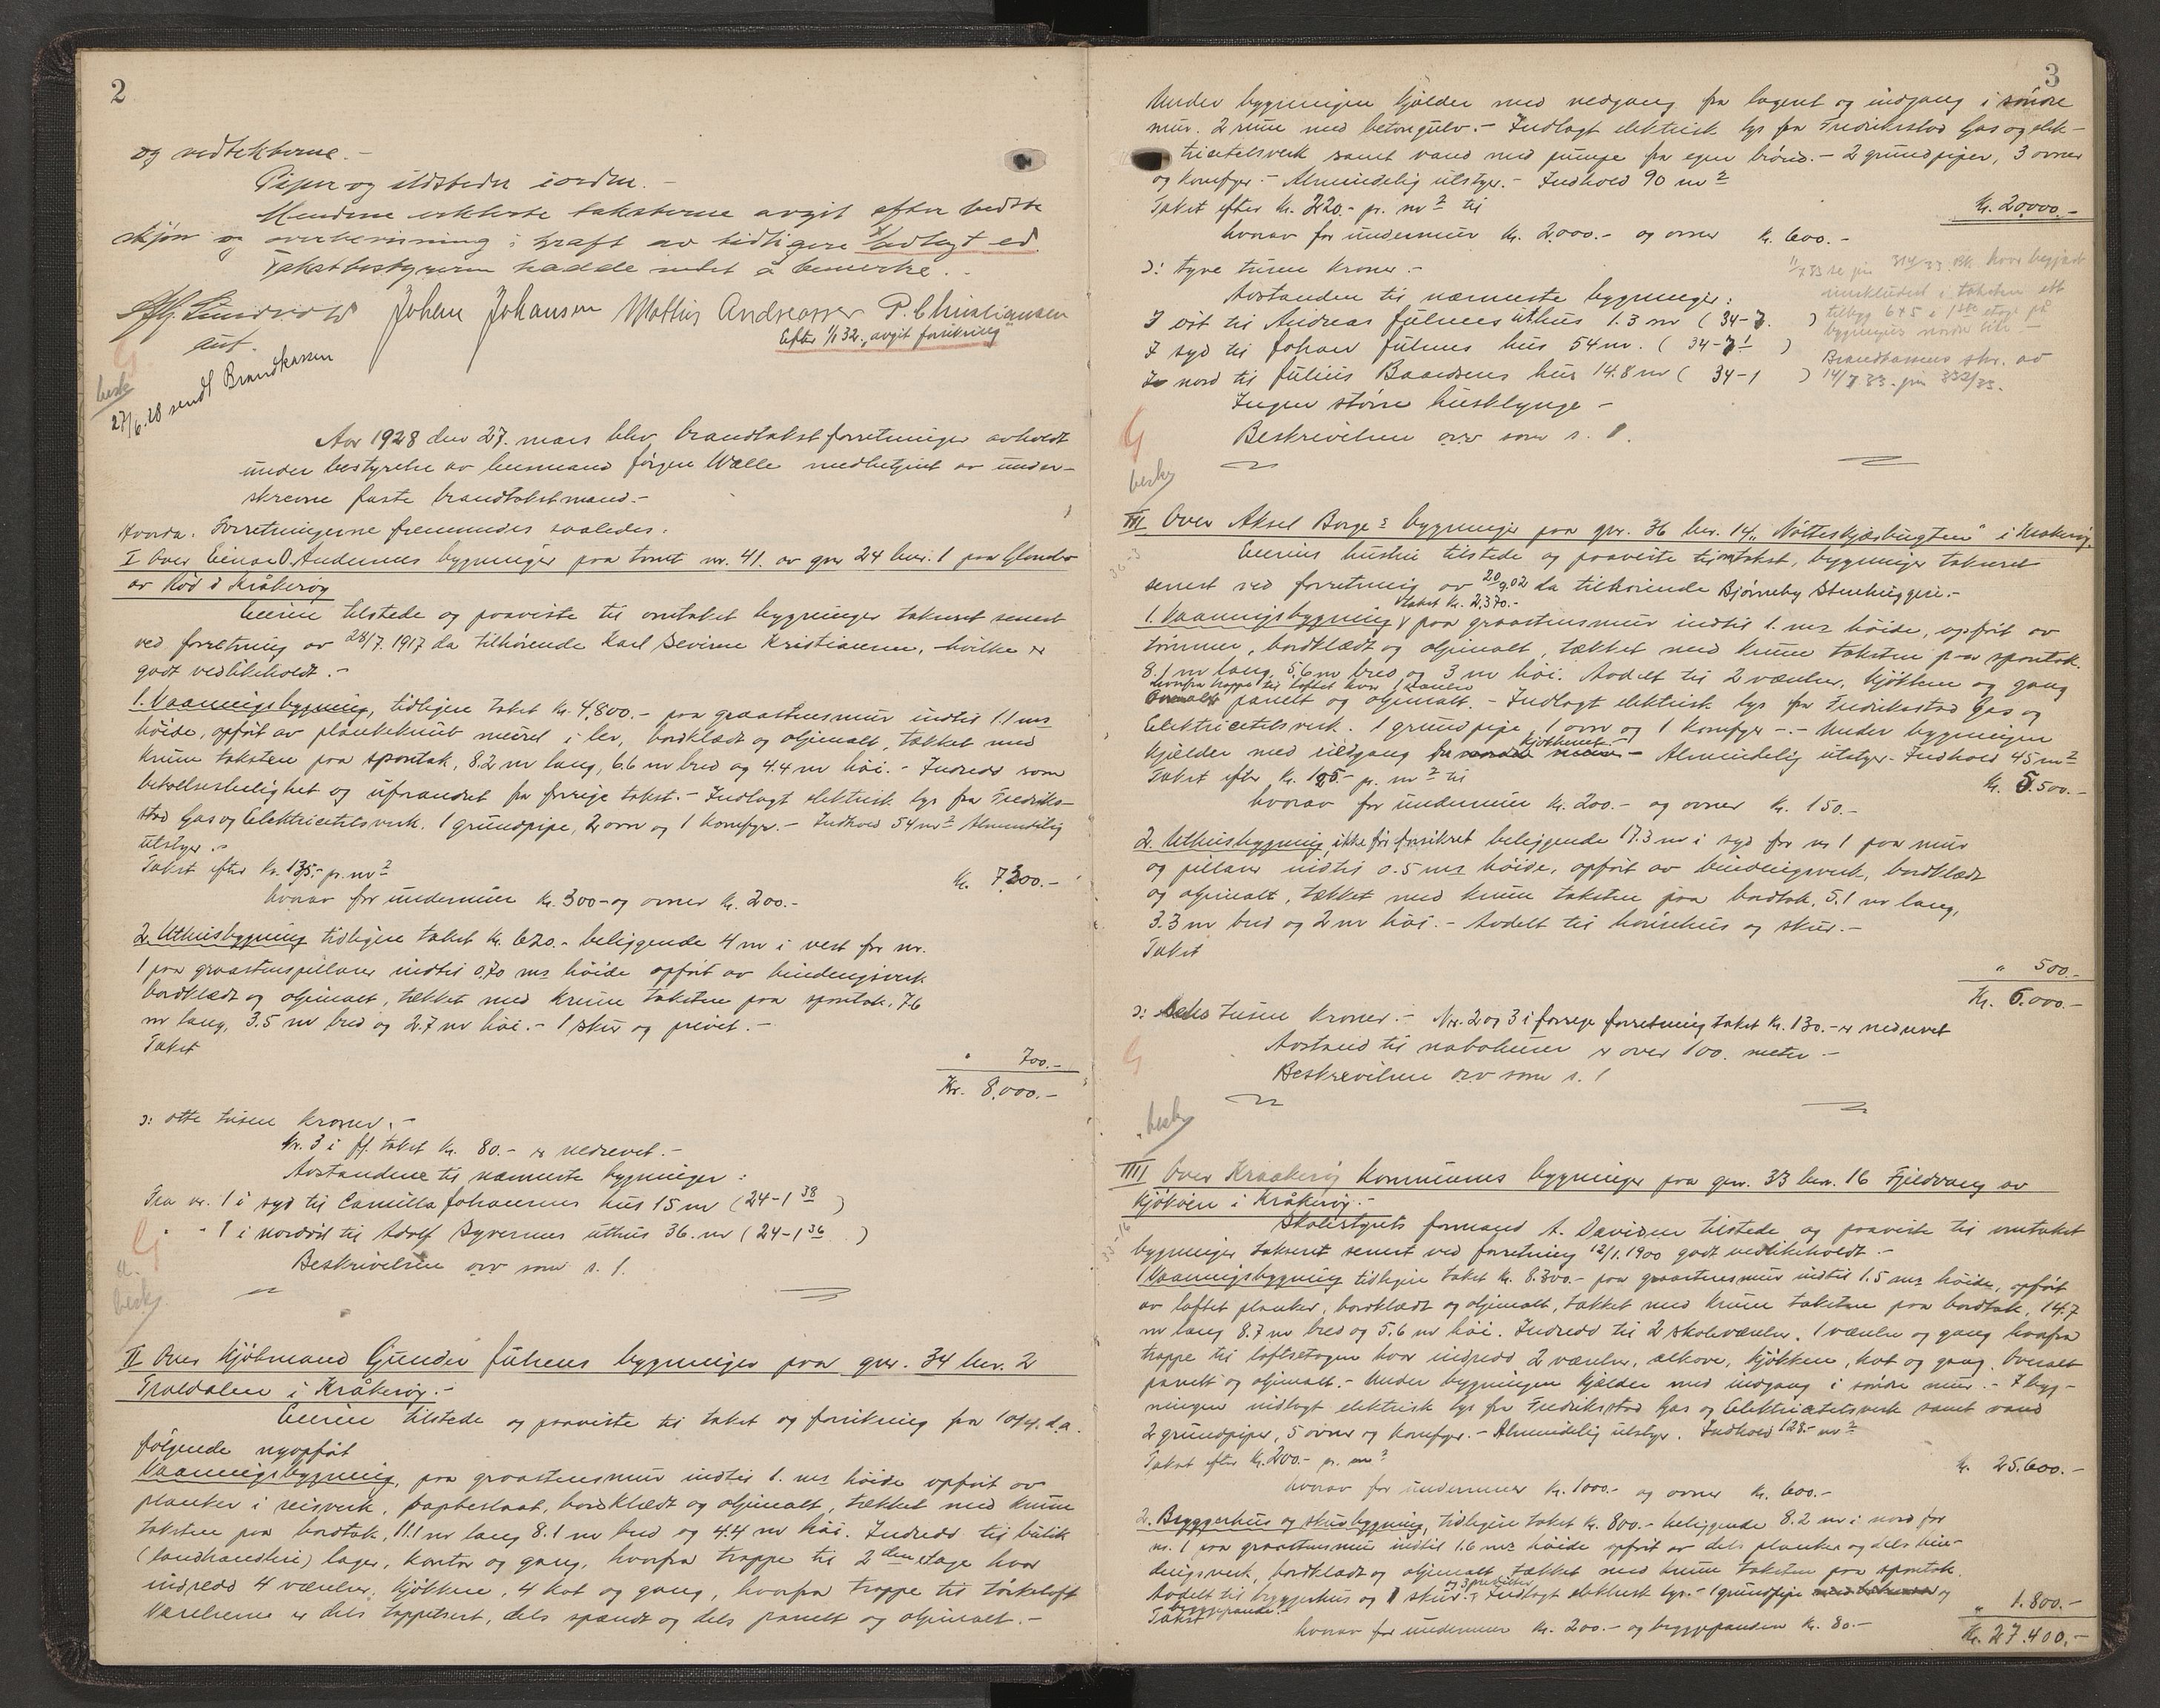 2
og vedtekterne.-
Piper og ildsteder iorden.-
Mendene erklerte taksterne avgit efter bedste
skjøn og overbevisning i kraft av tidligere avlagt ed.
Takstbestyreren hadde intet å bemerke.-
Johan Johansen Mathis Andreassen P. Christiansen
Efter 1/1 32, avgit forsikring"
besk
27/6.28 sendt Brandkassen
Aar 1928 den 27. mars blev brandtakstforretninger avholdt
under bestyrelse av lensmand Jørgen Walle medbetjent av under-
skrevne faste brandtakstmænd.-
Hvorda. Forretningerne fremmedes saaledes.
I Over Einar O. Andersens bygninger paa tomt nr. 41. av gnr 24 bnr. 1 paa Glombo
av Rød i Kråkerøy
Eieren tilstede og paaviste til omtakst bygninger takseret senest
ved forretning av 28/7. 1917 da tilhørende Karl Severin Kristiansen, hvilke er
godt vedlikeholdt.-
1. Vaaningsbygning, tidligere takst kr. 4,800.- paa graastensmur indtil 1.1 ms
høide, opført av plankeknut muret i ler, bordklædt og oljemalt, tækket med
krum taksten paa spontak, 8.2 m lang, 6.6 m bred og 4.4 m høi.- Indredd som
bekvelmshelighet og uforandret fra forrige takst.- Indlagt elektrisk lys fra Fredriks-
stad Gas og Elektricitetsverk. 1 grundpipe, 2 ovn og 1 komfyr.- Indhold 54 m² Almindelig
utstyr.-
Takst efter kr. 135.- pr. m² kr. 7300.-
hvorav for undermur kr. 300- og ovner kr. 200.-
2. Uthusbygning tidligere takst kr. 620.- beliggende 4 m i vest for nr.
1 paa graastenspillarer indtil 0.70 ms høide opført av bindingsverk
bordklædt og oljemalt, tækket med krum taksten paa spontak. 7.6
m lang, 3.5 m bred og 2.7 m høi.- 1 skur og privet.-
Takst " 700.-
Kr. 8,000.-
ɔ: otte tusen kroner.-
Nr. 3 i ff. takst kr. 80.- er nedrevet.-
Avstandene til nærmeste bygninger:
Fra nr. 1 i syd til Camilla Johansens hus 15 m (24-1 38)
" - 1 i nordøst til Adolf Syversens uthus 36. m (24-1 36)
Beskrivelsen orv som s. 1.
besk.
II Over kjøbmand Gunder Julsens bygninger paa gnr. 34 bnr. 2
Traldalen i Kråkerøy.-
Eieren tilstede og paaviste til takst og forsikring fra 10/4. d.a.
følgende nyopført
Vaaningsbygning, paa graastensmur indtil 1. ms høide opført av
planker i reisverk, papbeslaat, bordklædt og oljemalt, tækket med krum
taksten paa bordtak, 11.1 m lang 8.1 m bred og 4.4 m høi. Indredd til butik
(landhandleri) lager, kontor og gang, hvorfra trappe til 2 den etage hvor
indredd 4 værelser, kjøkken, 4 kot og gang, hvorfra trappe til tørkeloft
Værelserne er dels tappetsert, dels spændt og dels panelt og oljemalt.-
3
Under bygningen kjælder med nedgang fra lageret og indgang i søndre
mur. 2 rum med betongulv.- Indlagt elektrisk lys fra Fredriksstad Gas og elek-
tricitetsverk samt vand med pumpe fra egen brønd.- 2 grundpiper, 3 ovner
og komfyr.- Almindelig utstyr.- Indhold 90 m²
Takst efter kr. 220.- pr. m² til kr. 20.000.-
hvorav for undermur kr. 2.000.- og ovner kr. 600.-
ɔ: tyve tusen kroner.-
Avstanden til nærmeste bygninger:
I øst til Andreas Julsens uthus 1.3 m (34-7. )
I syd til Johan Julsens hus 54 m. (34-7 1 )
I nord til Julius Baardsens hus 14.8 m (34-1 )
Ingen større husklynge-
Beskrivelsen orv som s. 1.
besk
III Over Aksel Borge's bygninger paa gnr. 36 bnr. 14 „Nøtteskjærbugten" i Kråkerøy.
Eierens hustru tilstede og paaviste til omtakst, bygninger takseret
senest ved forretning av 20/9.02 da tilhørende Bjørneby Stenhuggeri.-
1. Vaaningsbygning takst kr. 2,370.- paa graastensmur indtil 1. ms høide, opført av
tømmer, bordklædt og oljemalt, tækket med krum taksten paa spontak.
8.1 m lang, 5.6 m bred og 3 m høi. Avdelt til 2 værelser, kjøkken og gang
hvorfra trappe til loftet hvor 1 værelse
Overalt panelt og oljemalt.- Indlagt elektrisk lys fra Fredriksstad Gas og
Elektricitetsverk. 1 grundpipe, 1 ovn og 1 komfyr.-.- Under bygningen
kjælder med nedgang fra kjøkkenet.- Almindelig utstyr- Indhold 45 m²
Takst efter kr. 125.- pr. m² til kr. 5.500.-
hvorav for undermur kr. 200.- og ovner kr. 150.-
2. Uthusbygning, ikke før forsikret beliggende 17.3 m i syd for nr 1 paa mur
og pillarer indtil 0.5 ms høide, opført av bindingsverk, bordklædt
og oljemalt, tækket med krum taksten paa bordtak. 5.1 m lang,
3.3 m bred og 2 m høi.- Avdelt til hønsehus og skur.-
Takst " 500.-
Kr. 6.000.-
ɔ: seks tusen kroner.- Nr. 2 og 3 i forrige forretning takst kr. 130.- er nedrevet
Avstand til nabohuser er over 100. meter-
Beskrivelsen orv som s. 1
besk
IIII Over Kraakerøy kommunes bygninger paa gnr. 33 bnr. 16 Fjeldvang av
Kjøkøen i Kråkerøy.-
33-16
Skolestyrets formand A. Davidsen tilstede og paaviste til omtakst
bygninger takseret senest ved forretning 12/1. 1900 godt vedlikeholdt.-
1 Vaaningsbygning tidligere takst kr. 8.300.- paa graastensmur indtil 1.5 ms høide, opført
av laftet planker, bordklædt og oljemalt, tækket med krum taksten paa bordtak, 14.7
m lang 8.7 m bred og 5.6 m høi. Indredd til 2 skoleværelser, 1 værelse og gang hvorfra
trappe til loftsetagen hvor indredd 2 værelser, alkove, kjøkken, kot og gang. Overalt
panelt og oljemalt.- Under bygningen kjælder med indgang i søndre mur.- I byg-
ningen indlagt elektrisk lys fra Fredriksstad Gas og Elektricitetsverk samt vand
2 grundpiper, 5 ovner og komfyr.- Almindelig utstyr. Indhold 128.- m²
Takst efter kr. 200.- pr. m² kr. 25.600.-
hvorav for undermur kr. 1000.- og ovner kr. 600.-
2. Bryggerhus og skurbygning, tidligere takst kr. 800.- beliggende 8.2 m i nord for
nr. 1 paa graastensmur indtil 1.6 ms høide opført av dels planker og dels bin-
dingsverk, bordklædt og oljemalt tækket med krum taksten paa spontak.
Avdelt til bryggerhus og 1 skur. og 3 privetter Indlagt elektrisk lys.- 1 grundpipe og
bryggepande.-
Takst " 1.800.-
hvorav for undermur kr. 200.- og bryggepanden kr. 80.-
Kr. 27.400.-